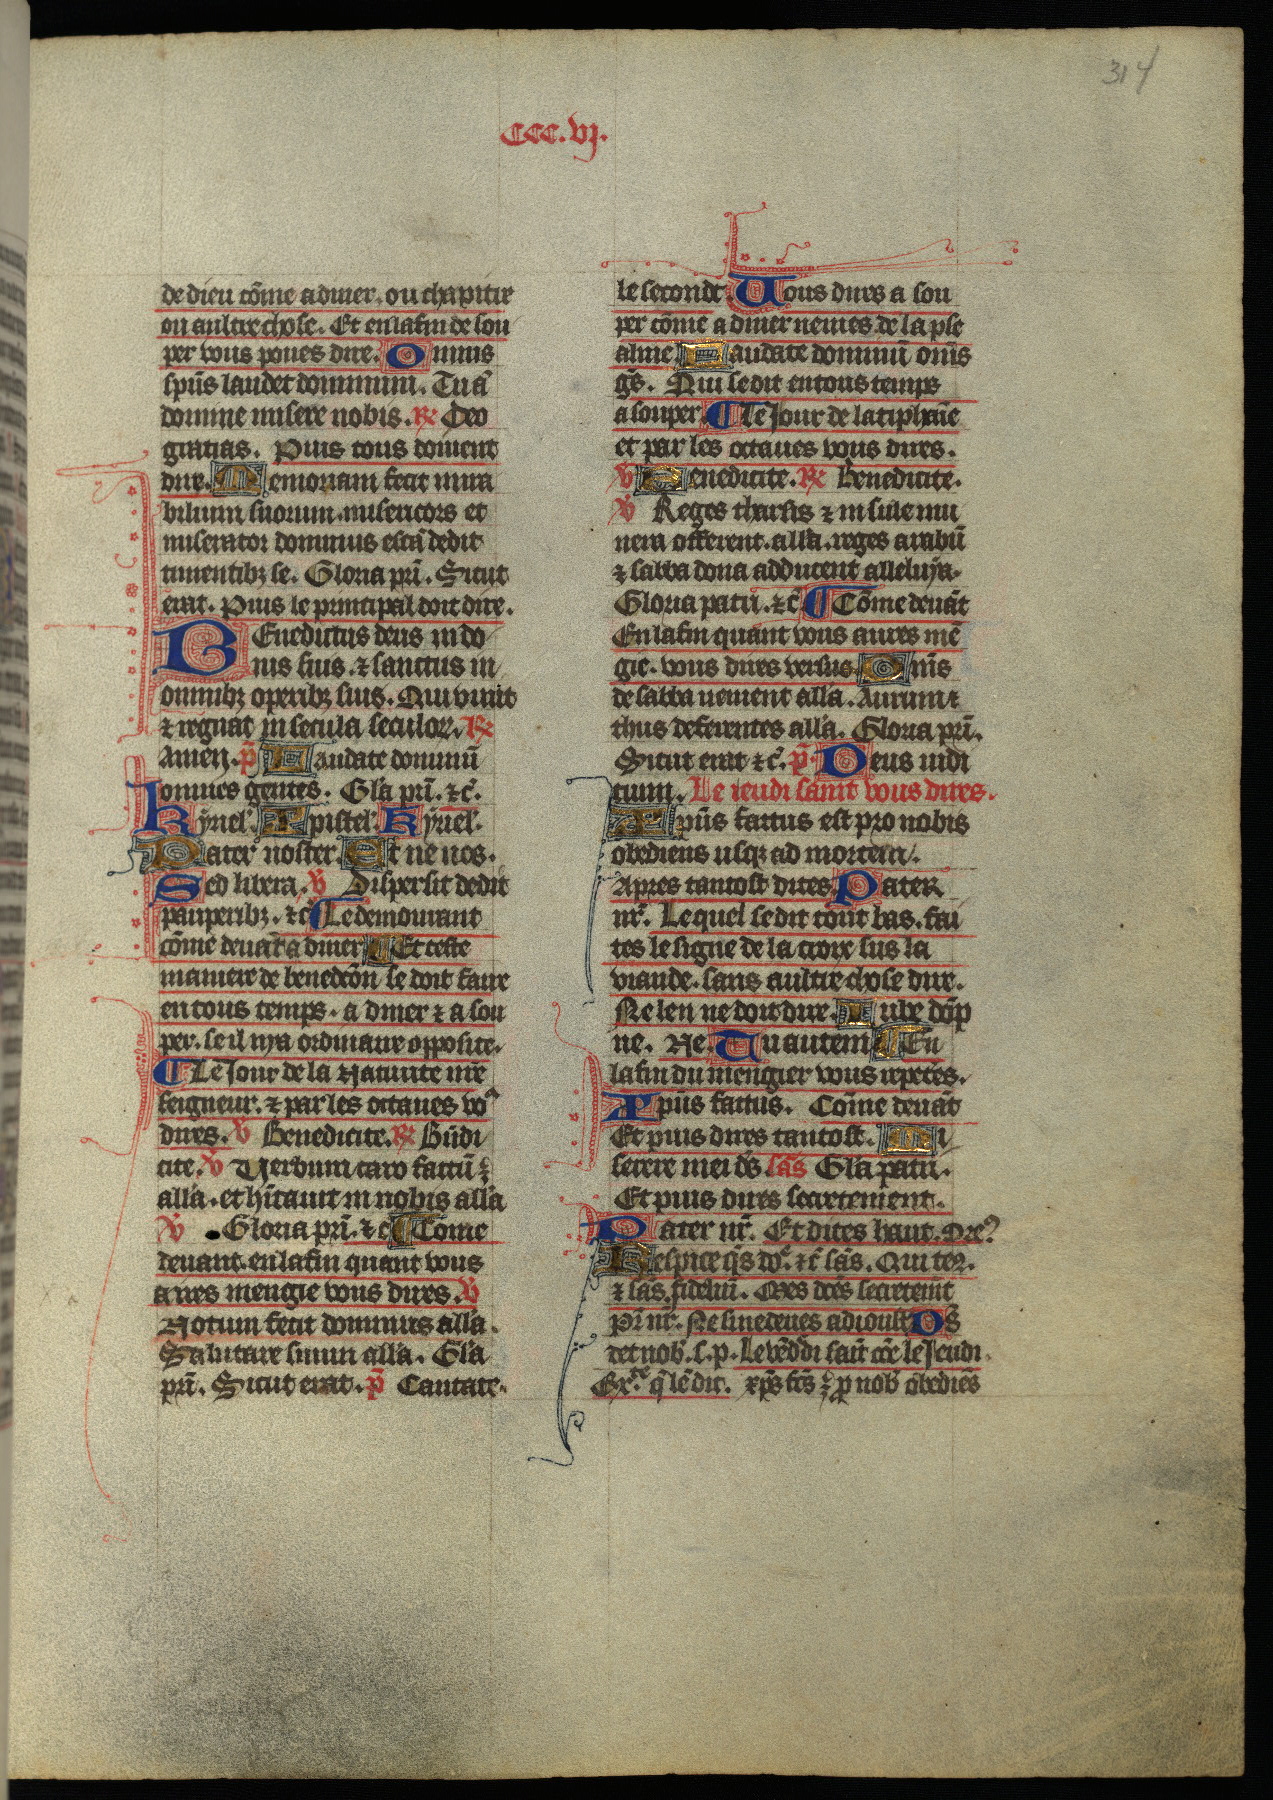 314
CCC.vj.
de dieu cõme a disner. ou chapitre
ou aultre chose. Et en la fin de sou
per vous poues dire. Omnis
spũs laudet dominum. Tu aũ
domine misere nobis. ℟ Deo
gratias. Puis tous doiuent
dire. Memoriam fecit mira
bilium suorum. misericors et
miserator dominus escã dedit
timentibꝫ se. Gloria prĩ. Sicut
erat. Puis le principal doit dire.
Benedictus deus in do
nis suis. ⁊ sanctus in
omnibꝫ operibꝫ suis. Qui viuit
⁊ regnat in secula seculoꝝ. ℟
Amen. p̃ Laudate dominũ
omnes gentes. Gl'a prĩ. ⁊c̃.
Kyriel'. Xpistel'. Kyriel'.
Pater noster. Et ne nos.
Sed libera. ℣ Dispersit dedit
pauperibꝫ. ⁊c̃ Le demourant
cõme deuãt a disner Et ceste
maniere de benedcõn se doit faire
en tous temps. a disner ⁊ a sou
per. se il nya ordinaire opposite.
Le Jour de la Natiuite nr̃e
seigneur. ⁊ par les octaues vo⁹
dires. ℣ Benedicite. ℟ Bñdi
cite. ℣ Verbum caro factũ ẽ
all'a. et hĩtauit in nobis all'a
℣ Gloria prĩ. ⁊c̃ Cõme
deuant. en la fin quant vous
aures mengie vous dires. ℣
Notum fecit dominus all'a.
Salutare suum all'a. Gl'a
prĩ. Sicut erat. p̃ Cantate.
le secondt. Vous dires a sou
per cõme a disner nemes de la pse
alme. Laudate dominũ om̃s
gẽs. Qui se dit en tous temps
a souper. Le Jour de la tiphaĩe
et par les octaues vous dires.
℣ Benedicite. ℟ Benedicite.
℣ Reges tharsis ⁊ insule mu
nera offerent. all'a. reges arabũ
⁊ sabba dona adducent alleluya.
Gloria patri. ⁊c̃ Cõme deuãt
En la fin quant vous aures mẽ
gie. vous dires versus. Om̃s
de sabba uenient all'a. Aurum ⁊
thus deferentes all'a. Gloria prĩ.
Sicut erat ⁊c̃. p̃. Deus iudi
cium. Le ieudi saint vous dires.
Xpũs factus est pro nobis
obediens usqꝫ ad mortem.
Apres tantost dites Pater
nr̃. Le quel se dit tout bas. fai
tes le signe de la croix sus la
viande. sans aultre chose dire.
Ne len ne doit dire. Iube dõp
ne. Ne. Tu autem En
la fin du mengier vous repetes.
Xpũs factus. Cõme deuãt
Et puis dires tantost. Mi
serere mei dẽs sãs Gl'a patri.
Et puis dires secretement.
Pater nr̃. Et dites hault. Ore?
Respice q̃s dñe. ⁊c̃ sãs. Qui tec̃.
⁊ sãs. fideliũ. Mes dẽs secretem̃t
Pr̃ nr̃. Ne si ne deues adiouste Dẽs
det nob̃. s. p. Le vẽd'di sait cõe le Jeudi.
Exc̃. q̃ lẽ dit. xp̃s fc̃s ẽ p nob̃ obediẽs